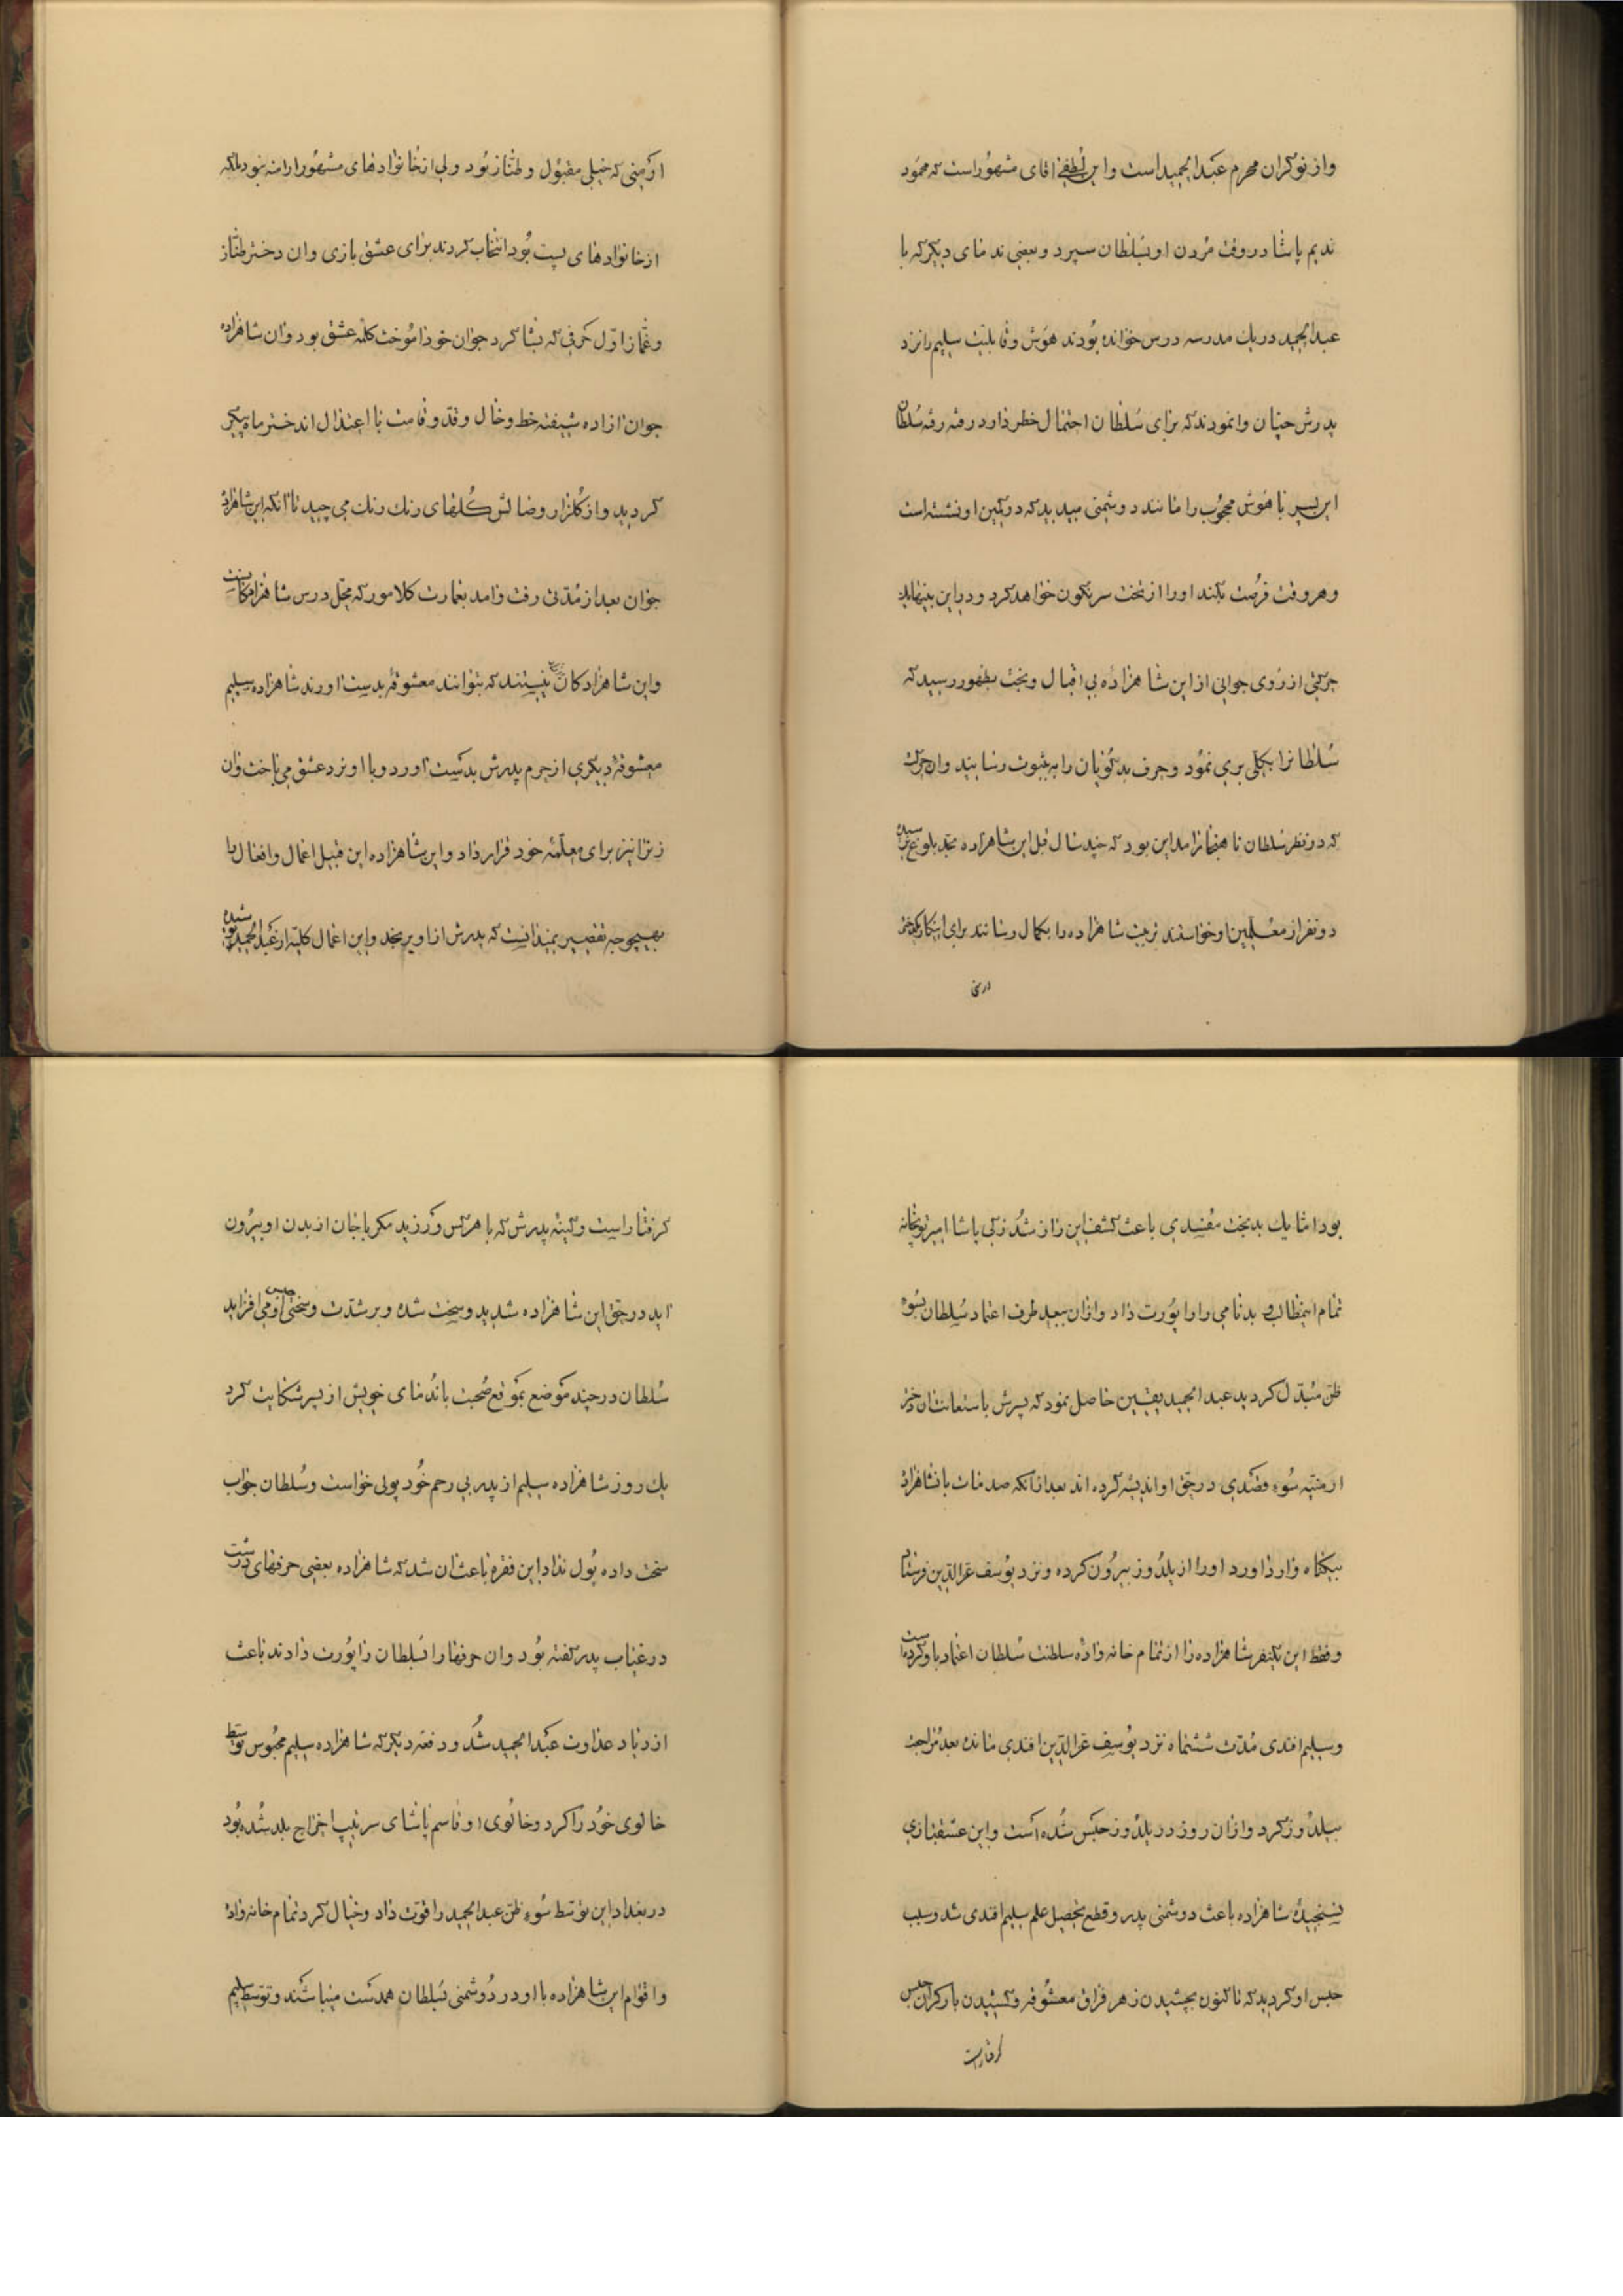 واز نوکران محرم عبدالحمید است واین لطفی اقای مشهور است که محمود
ندیم پاشا در وقت مردن او بسلطان سپرد وبعضی ندمای دیگر که با
عبدالحمید در یک مدرسه درس خوانده بودند هوش وقابلیت سلیم را نزد
پدرش چنان وانمودند که برای سلطان احتمال خطر دارد رفته رفته سلطان
این پسر با هوش محجوب را مانند دوشمنی میدید که در کمین او نشسته است
وهر وقت فرصت بکند اورا از تخت سرنگون خواهد کرد ودر این بینها یک
حرکتی از روی جوانی از این شاهزاده بی اقبال وبخت بظهور رسید که
سلطانرا بکلی بری نمود وحرف بدگویان را به ثبوت رسانید وان حرکت
که در نظر سلطان ناهنجار امد این بود که چند سال قبل این شاهزاده بحد بلوغ رسیده
دو نفر از معلمین او خواستند تربیت شاهزاده را بکمال رسانند برای اینکار یکدختر
ارمنی
ارمنی که خیلی مقبول وطناز بود ولی از خانوادهای مشهور ارامنه نبود بلکه
از خانوادهای پست بود انتخاب کردند برای عشق بازی وان دختر طناز
وغماز اول حرفی که بشاکرد جوان خود اموخت کلمه عشق بود وان شاهزاده
جوان ازاده شیفته خط وخال وقد وقامت با اعتدال اندختر ماه پیکر
کردید واز کلزار وصالش کلهای رنک رنک می چید تا انکه این شاهزاده
جوان بعد از مدتی رفت وامد بعمارت کلامور که محل درس شاهزادکانست
واین شاهزادکان نیستند که بتوانند معشوقه بدست اورند شاهزاده سلیم
معشوقه دیکری از حرم پدرش بدست اورد وبا او نرد عشق می باخت وان
زنرا نیز برای معلمه خود قرار داد واین شاهزاده این قبیل اعمال وافعال را
بهیچوجه تقصیر نمیدانست که پدرش از او برنجد واین اعمال کلیة از عبدالحمید
بود اما یک بدبخت مفسدی باعث کشف این راز شد زکی پاشا امیر توپخانه
تمام این بدنامی را راپورت داد وازان ببعد طرف اعتماد سلطان بسوء
ظن مبدل کردید عبدالحمید یقین حاصل نمود که پسرش باستعانت ان دختر
ارمنیه سوء قصدی در حق او اندیشه کرده اند بعد از انکه صدمات بانشاهزاده
بیکناه وارد اورد اورا از یلدوز بیرون کرده ونزد یوسف عزالدین فرستاد
وفقط این یکنفر شاهزاده را از تمام خانه واده سلطنت سلطان اعتماد باو کرده است
وسلیم افندی مدت ششماه نزد یوسف عزالدین افندی مانده بعد مراجعت
بیلدوز کرد وازان روز در یلدوز حبس شده است واین عشقبازی
نسنجیده شاهزاده باعث دوشمنی پدر وقطع تحصیل علم سلیم افندی شد وسبب
حبس او کردید که تاکنون بچشیدن زهر فراق معشوقه وکشیدن بار کران حبس
گرفتار است
کرفتار است وکینه پدرش که با هر کس ورزید مکر با جان از بدن او بیرون
اید در حق این شاهزاده شدید وسخت شده وبر شدت وسختی حبس او می افزاید
سلطان در چند موضع بموقع صحبت با ندمای خویش از پسر شکایت کرد
یک روز شاهزاده سلیم از پدر بی رحم خود پولی خواست وسلطان جواب
سخت داده پول نداد این فقره باعث ان شد که شاهزاده بعضی حرفهای درشت
در غیاب پدر کفته بود وان حرفها را بسلطان راپورت دادند باعث
ازدیاد عداوت عبدالحمید شد ودفعه دیکر که شاهزاده سلیم محبوس توسط
خالوی خود را کرد وخالوی او قاسم پاشای سرتیپ اخراج بلد شده بود
در بغداد این توسط سوء ظن عبدالحمید را قوت داد وخیال کرد تمام خانه واده
واقوام این شاهزاده با او در دوشمنی سلطان همدست میباشند وتوسط سلیم